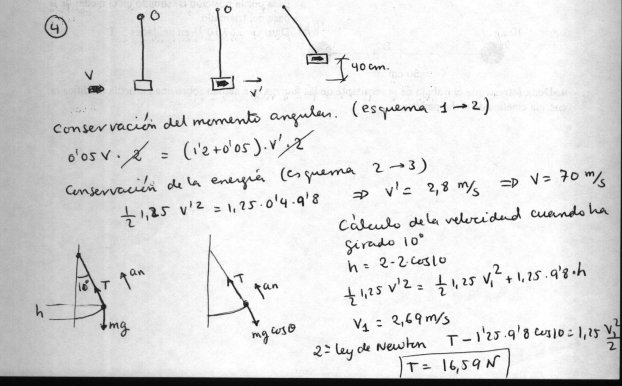 4
O
O
V
V'
40 cm.
Conservación del momento angular. (esquema 1→2)
0'05 V · 2 = (1'2+0'05) · V' · 2
Conservación de la energía (esquema 2→3)
½ 1,25 V'² = 1,25 · 0'4 · 9'8 ⇒ V' = 2,8 m/s ⇒ V = 70 m/s
Cálculo de la velocidad cuando ha
girado 10°
h = 2-2·cos10
½ 1,25 V'² = ½ 1,25 V₁² + 1,25 · 9'8 · h
V₁ = 2,69 m/s
2ª ley de Newton T - 1'25 · 9'8 cos10 = 1,25 V₁²/2
T = 16,59 N
10°
T
an
h
mg
T
an
mg cosθ